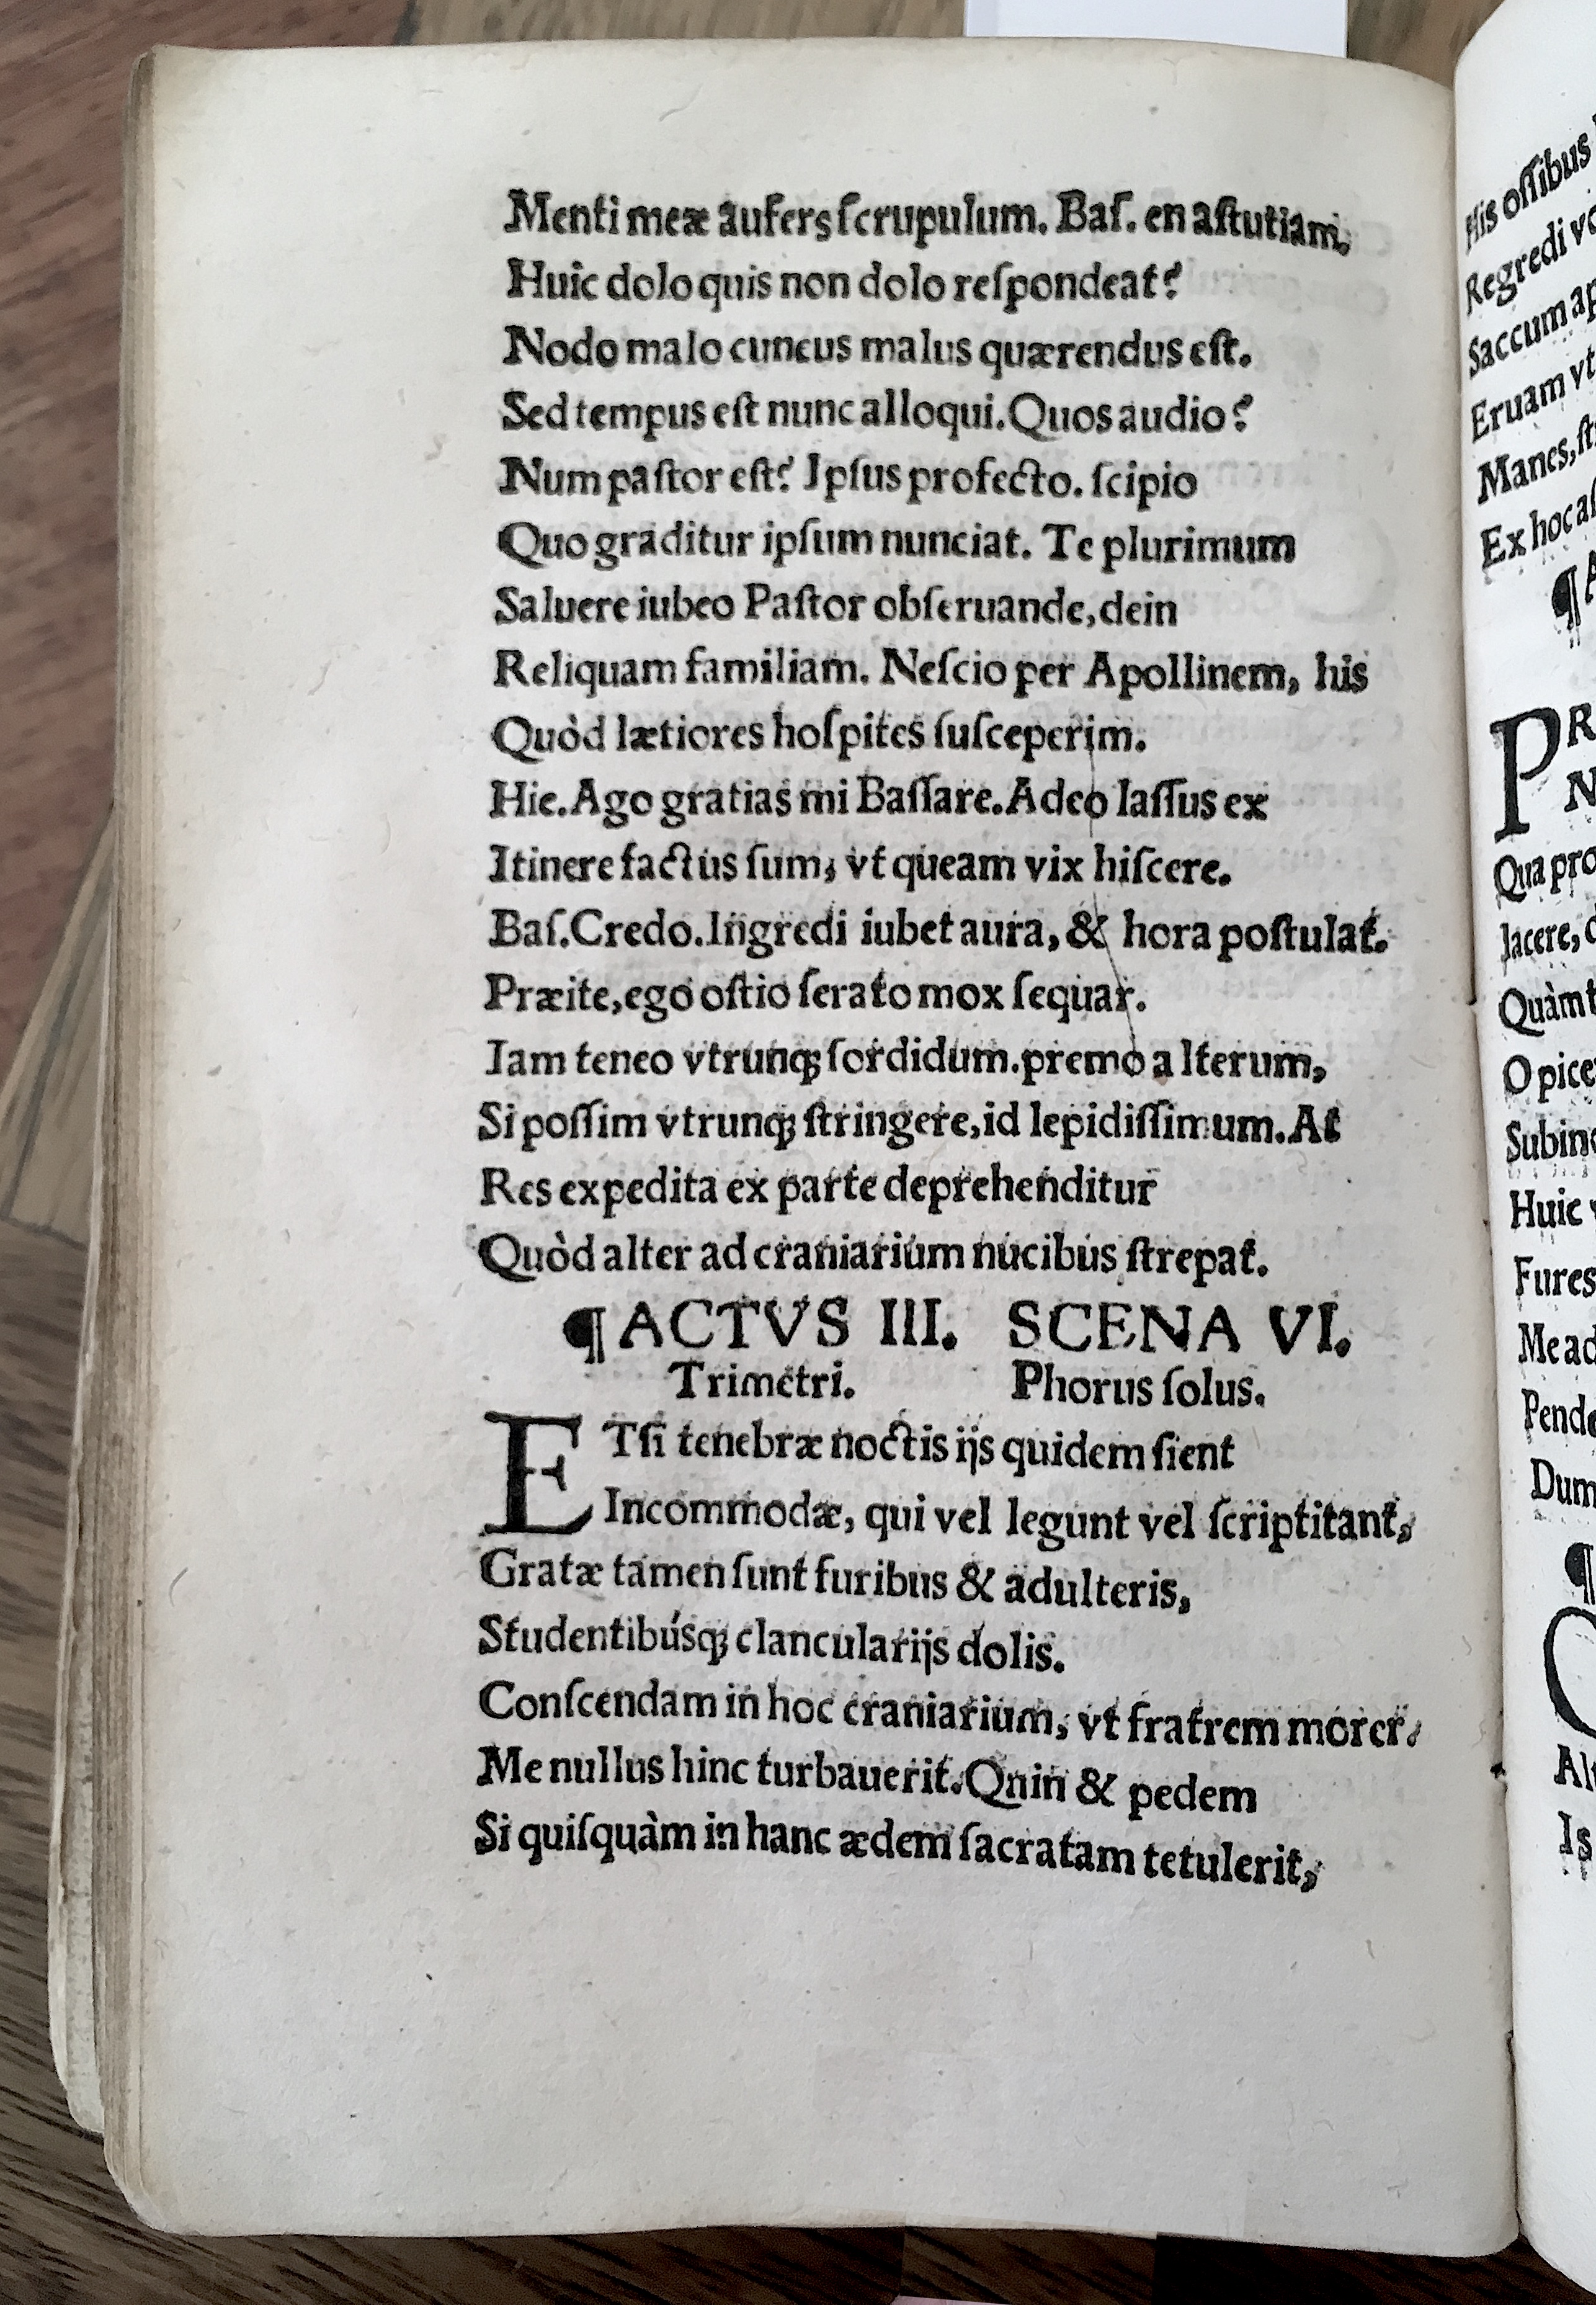 Menti meæ aufers ſcrupulum. Baſ. en aſtutiam,
Huic dolo quis non dolo reſpondeat?
Nodo malo cuneus malus quærendus eſt.
Sed tempus eſt nunc alloqui. Quos audio?
Num paſtor eſt? Ipſus profecto. ſcipio
Quo graditur ipſum nunciat. Te plurimum
Saluere iubeo Paſtor obſeruande, dein
Reliquam familiam. Neſcio per Apollinem, his
Quòd lætiores hoſpites ſuſceperim.
Hie. Ago gratias mi Baſſare. Adeo laſſus ex
Itinere factus ſum, vt queam vix hiſcere.
Baſ. Credo. Ingredi iubet aura, & hora poſtulat.
Præite, ego oſtio ſerato mox ſequar.
Iam teneo vtrunq; ſordidum. premo alterum,
Si poſſim vtrunq; ſtringere, id lepidiſſimum. At
Res expedita ex parte deprehenditur
Quòd alter ad craniarium nucibus ſtrepat.
¶ ACTVS III. SCENA VI.
Trimetri. Phorus ſolus.
ETſi tenebræ noctis ijs quidem ſient
Incommodæ, qui vel legunt vel ſcriptitant,
Gratæ tamen ſunt furibus & adulteris,
Studentibúsq; clancularijs dolis.
Conſcendam in hoc craniarium, vt fratrem morer.
Me nullus hinc turbauerit. Qnin & pedem
Si quiſquàm in hanc ædem ſacratam tetulerit,
His oſſibus
Regredi
Saccum
Eruam vt
Manes,
Ex hoc
¶
PR
N
Qua
Iacere,
Quàm
O
Huic
Fures
Me
Dum
¶
Is